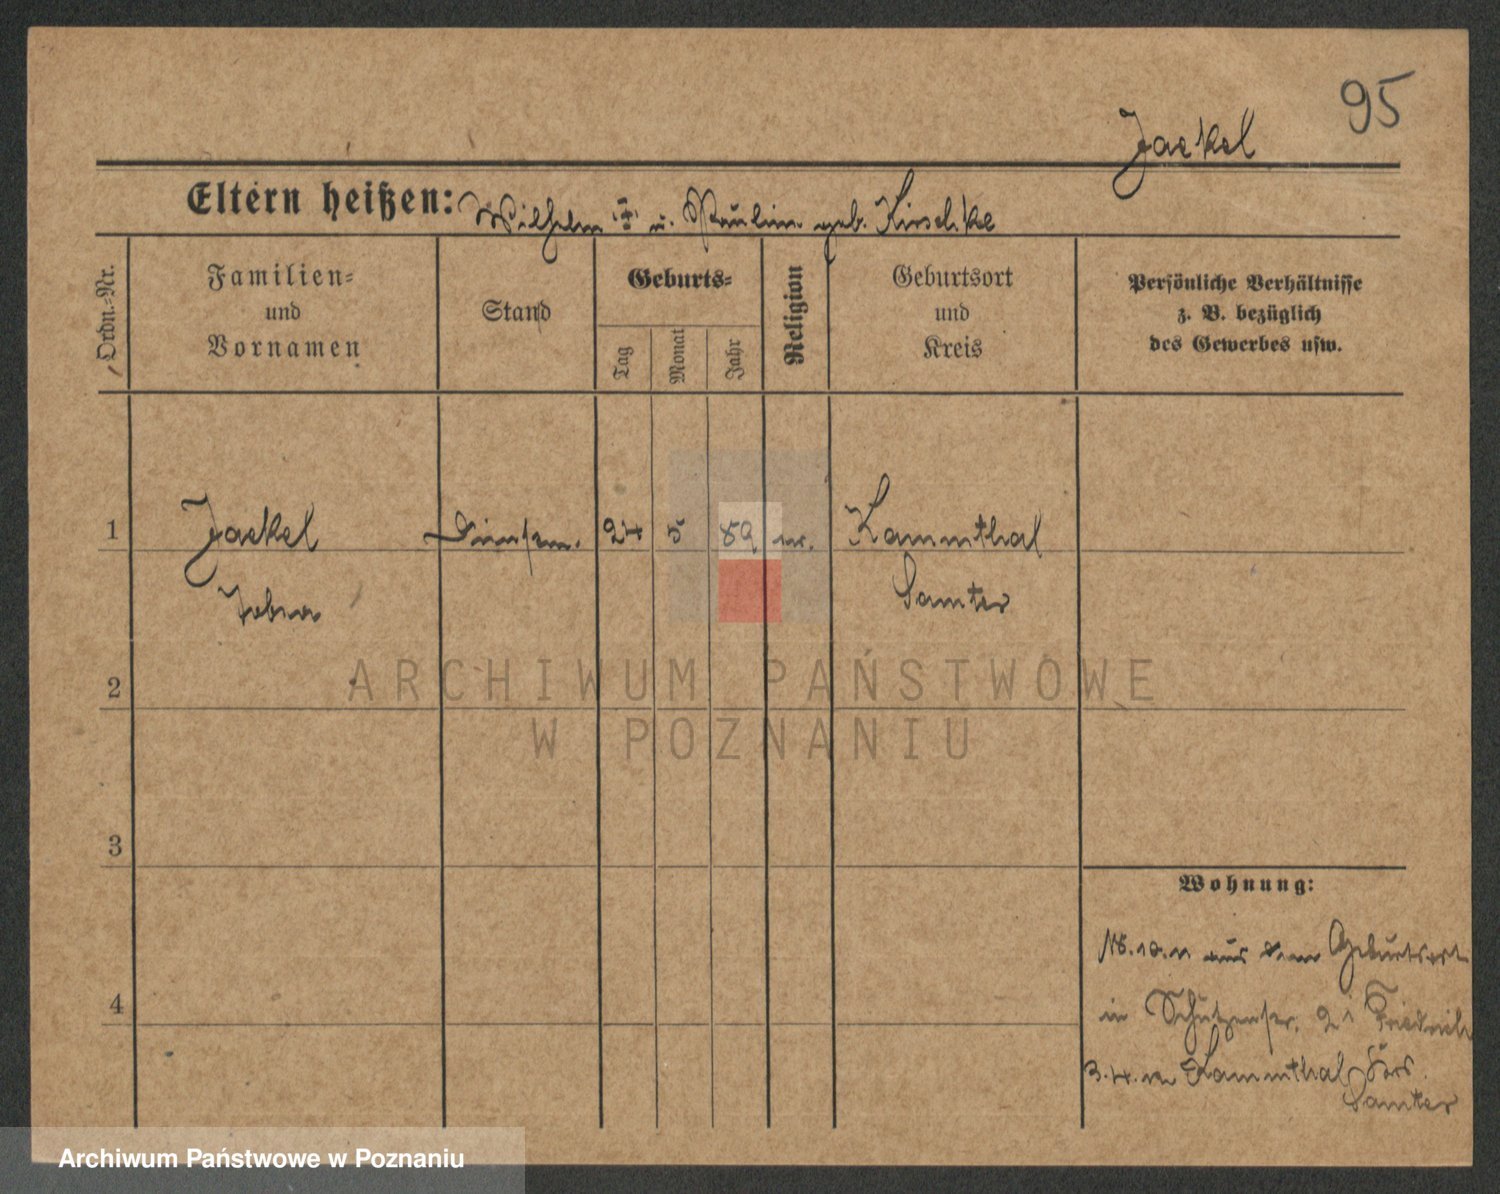 95
Jaekel
Eltern heißen: Wilhelm u. Paulin geb. Kirschke
Ordn.-Nr.
Familien-
und
Vornamen
Stand
Geburts-
Tag
Monat
Jahr
Religion
Geburtsort
und
Kreis
Persönliche Verhältnisse
z. B. bezüglich
des Gewerbes usw.
1 Jaekel 24 5 89 Kammthal
Samter
ARCHIWUM PAŃSTWOWE
W POZNANIU
2
3
4
Wohnung:
18.10.11 aus dem Geburtsort
in Schützenstr. 21 Friedrich
3.4. Kammthal Krs.
Samter
Archiwum Państwowe w Poznaniu